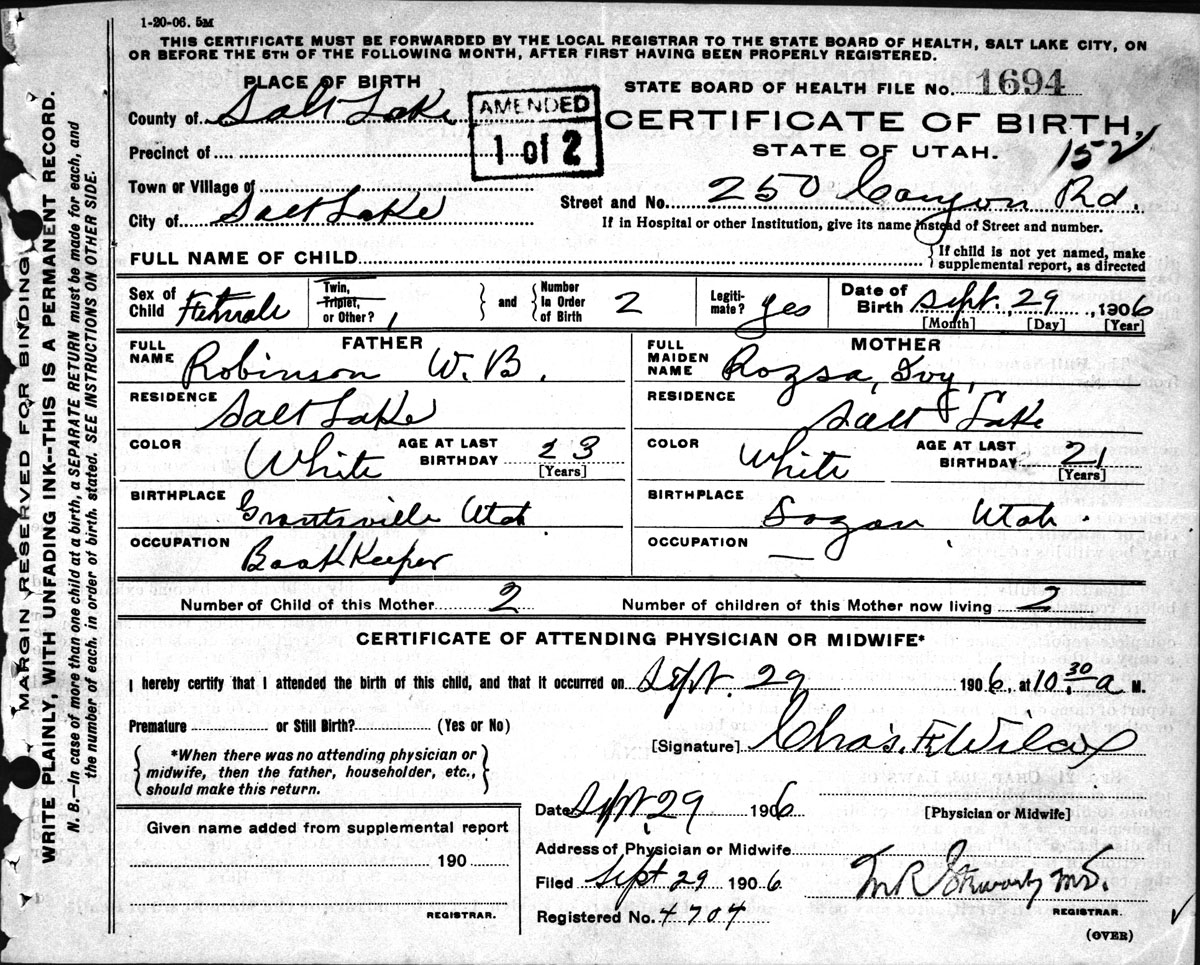 1-20-06. 5M
THIS CERTIFICATE MUST BE FORWARDED BY THE LOCAL REGISTRAR TO THE STATE BOARD OF HEALTH, SALT LAKE CITY, ON
OR BEFORE THE 5TH OF THE FOLLOWING MONTH, AFTER FIRST HAVING BEEN PROPERLY REGISTERED.
PLACE OF BIRTH
STATE BOARD OF HEALTH FILE No. 1694
County of Salt Lake
AMENDED
1 of 2
CERTIFICATE OF BIRTH,
Precinct of
STATE OF UTAH. 152
Town or Village of
Street and No. 250 Canyon Rd.
City of Salt Lake
If in Hospital or other Institution, give its name instead of Street and number.
FULL NAME OF CHILD
If child is not yet named, make
supplemental report, as directed
Sex of Child Female
Twin, Triplet, or Other? 1
and
Number In Order of Birth 2
Legiti-mate? Yes
Date of Birth Sept. 29, 1906
[Month] [Day] [Year]
FATHER
FULL NAME Robinson W. B.
RESIDENCE Salt Lake
COLOR White
AGE AT LAST BIRTHDAY 23
[Years]
BIRTHPLACE Grantsville Utah
OCCUPATION Bookkeeper
MOTHER
FULL MAIDEN NAME Rozsa, Ivy,
RESIDENCE Salt Lake
COLOR White
AGE AT LAST BIRTHDAY 21
[Years]
BIRTHPLACE Utah.
OCCUPATION —
Number of Child of this Mother 2
Number of children of this Mother now living 2
CERTIFICATE OF ATTENDING PHYSICIAN OR MIDWIFE*
I hereby certify that I attended the birth of this child, and that it occurred on Sept. 29 1906, at 10 30 a M.
Premature or Still Birth? (Yes or No)
[Signature] Chas. F. Wilcox
*When there was no attending physician or
midwife, then the father, householder, etc.,
should make this return.
Date Sept. 29 1906
[Physician or Midwife]
Given name added from supplemental report
Address of Physician or Midwife
190
Filed Sept 29 1906
M.D.
REGISTRAR.
Registered No. 4704
REGISTRAR.
(OVER)
MARGIN RESERVED FOR BINDING
WRITE PLAINLY, WITH UNFADING INK--THIS IS A PERMANENT RECORD.
N. B.—In case of more than one child at a birth, a SEPARATE RETURN must be made for each, and
the number of each, in order of birth, stated. SEE INSTRUCTIONS ON OTHER SIDE.